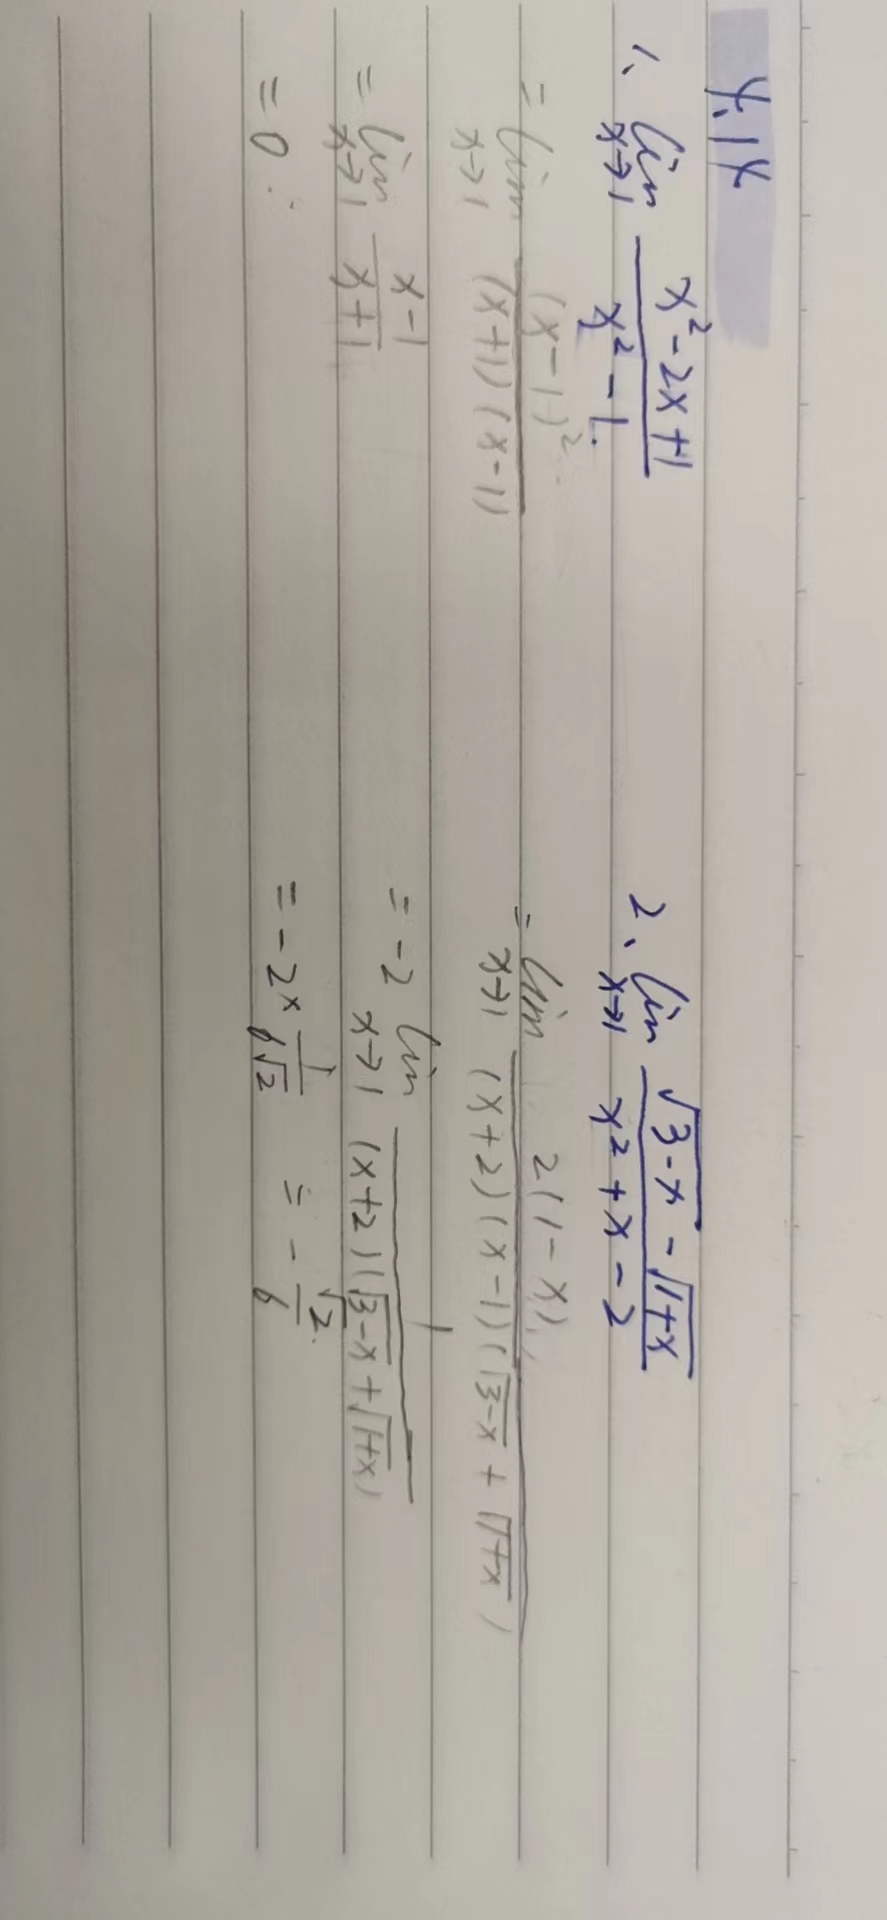 4.14
1、lim x→1 (x²-2x+1)/(x²-1)
= lim x→1 (x-1)²/((x+1)(x-1))
= lim x→1 (x-1)/(x+1)
= 0
2、lim x→1 (√(3-x) - √(1+x))/(x²+x-2)
= lim x→1 2(1-x)/((x+2)(x-1)(√(3-x) + √(1+x)))
= -2 lim x→1 1/((x+2)(√(3-x)+√(1+x)))
= -2× 1/(6√2) = -√2/6